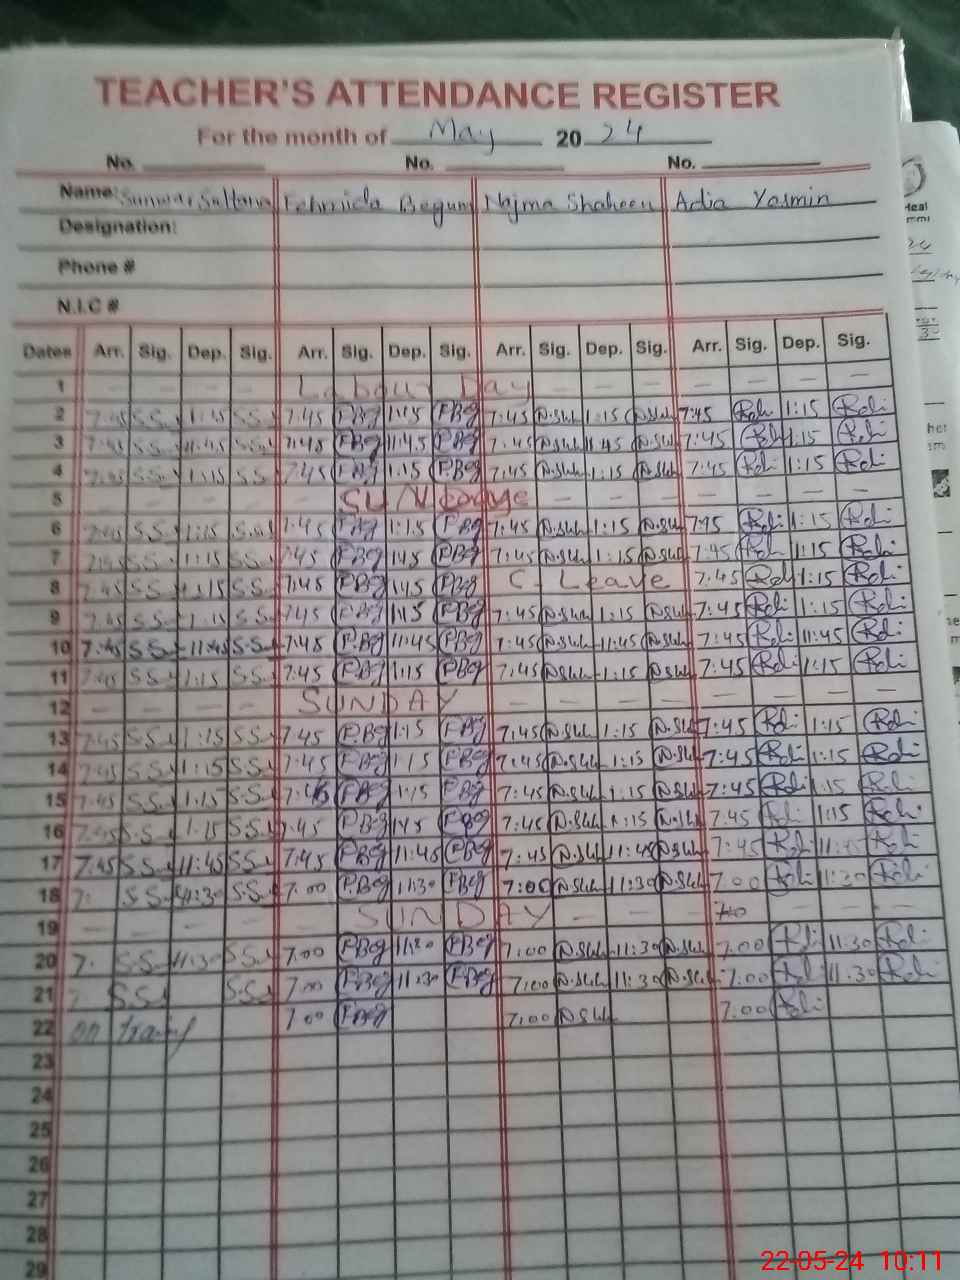 TEACHER'S ATTENDANCE REGISTER
For the month of May 2024
No. No. No.
Name: Sultana Fehmida Begum Najma Shaheen Adia Yasmin
Designation:
Phone #
N.I.C #
Dates Arr. Sig. Dep. Sig. Arr. Sig. Dep. Sig. Arr. Sig. Dep. Sig. Arr. Sig. Dep. Sig.
1 — — — — Labour Day — — — — — — —
2 7:45 S.S 1:15 S.S 7:45 FBeg 1:15 FBeg 7:45 N.Sh 1:15 N.Sh 7:45 1:15
3 7:45 S.S 11:45 S.S 7:45 FBeg 11:45 FBeg 7:45 N.Sh 11:45 N.Sh 7:45 1:15
4 7:45 S.S 1:15 S.S 7:45 FBeg 1:15 FBeg 7:45 N.Sh 1:15 N.Sh 7:45 1:15
5 — — — SUN — — — — — — —
6 7:45 S.S 1:15 S.S 7:45 FBeg 1:15 FBeg 7:45 N.Sh 1:15 N.Sh 7:45 1:15
7 7:45 S.S 1:15 S.S 7:45 FBeg 1:15 FBeg 7:45 N.Sh 1:15 N.Sh 7:45 1:15
8 7:45 S.S 1:15 S.S 7:45 FBeg 1:15 FBeg C. Leave 7:45 1:15
9 7:45 S.S 1:15 S.S 7:45 FBeg 1:15 FBeg 7:45 N.Sh 1:15 N.Sh 7:45 1:15
10 7:45 S.S 11:45 S.S 7:45 FBeg 11:45 FBeg 7:45 N.Sh 11:45 N.Sh 7:45 11:45
11 7:45 S.S 1:15 S.S 7:45 FBeg 1:15 FBeg 7:45 N.Sh 1:15 N.Sh 7:45 1:15
12 — — — — SUNDAY — — — — — — —
13 7:45 S.S 1:15 S.S 7:45 FBeg 1:15 FBeg 7:45 N.Sh 1:15 N.Sh 7:45 1:15
14 7:45 S.S 1:15 S.S 7:45 FBeg 1:15 FBeg 7:45 N.Sh 1:15 N.Sh 7:45 1:15
15 7:45 S.S 1:15 S.S 7:45 FBeg 1:15 FBeg 7:45 N.Sh 1:15 N.Sh 7:45 1:15
16 7:45 S.S 1:15 S.S 7:45 FBeg 1:15 FBeg 7:45 N.Sh 1:15 N.Sh 7:45 1:15
17 7:45 S.S 11:45 S.S 7:45 FBeg 11:45 FBeg 7:45 N.Sh 11:45 N.Sh 7:45 11:45
18 7: S.S 11:30 S.S 7:00 FBeg 11:30 FBeg 7:00 N.Sh 11:30 N.Sh 7:00 11:30
19 — — — — SUNDAY — — — — —
20 7: S.S 11:30 S.S 7:00 FBeg 11:30 FBeg 7:00 N.Sh 11:30 N.Sh 7:00 11:30
21 S.S S.S 7:00 FBeg 11:30 FBeg 7:00 N.Sh 11:30 N.Sh 7:00 11:30
22 on 7:00 FBeg 7:00 N.Sh 7:00
23
24
25
26
27
28
29
22-05-24 10:11